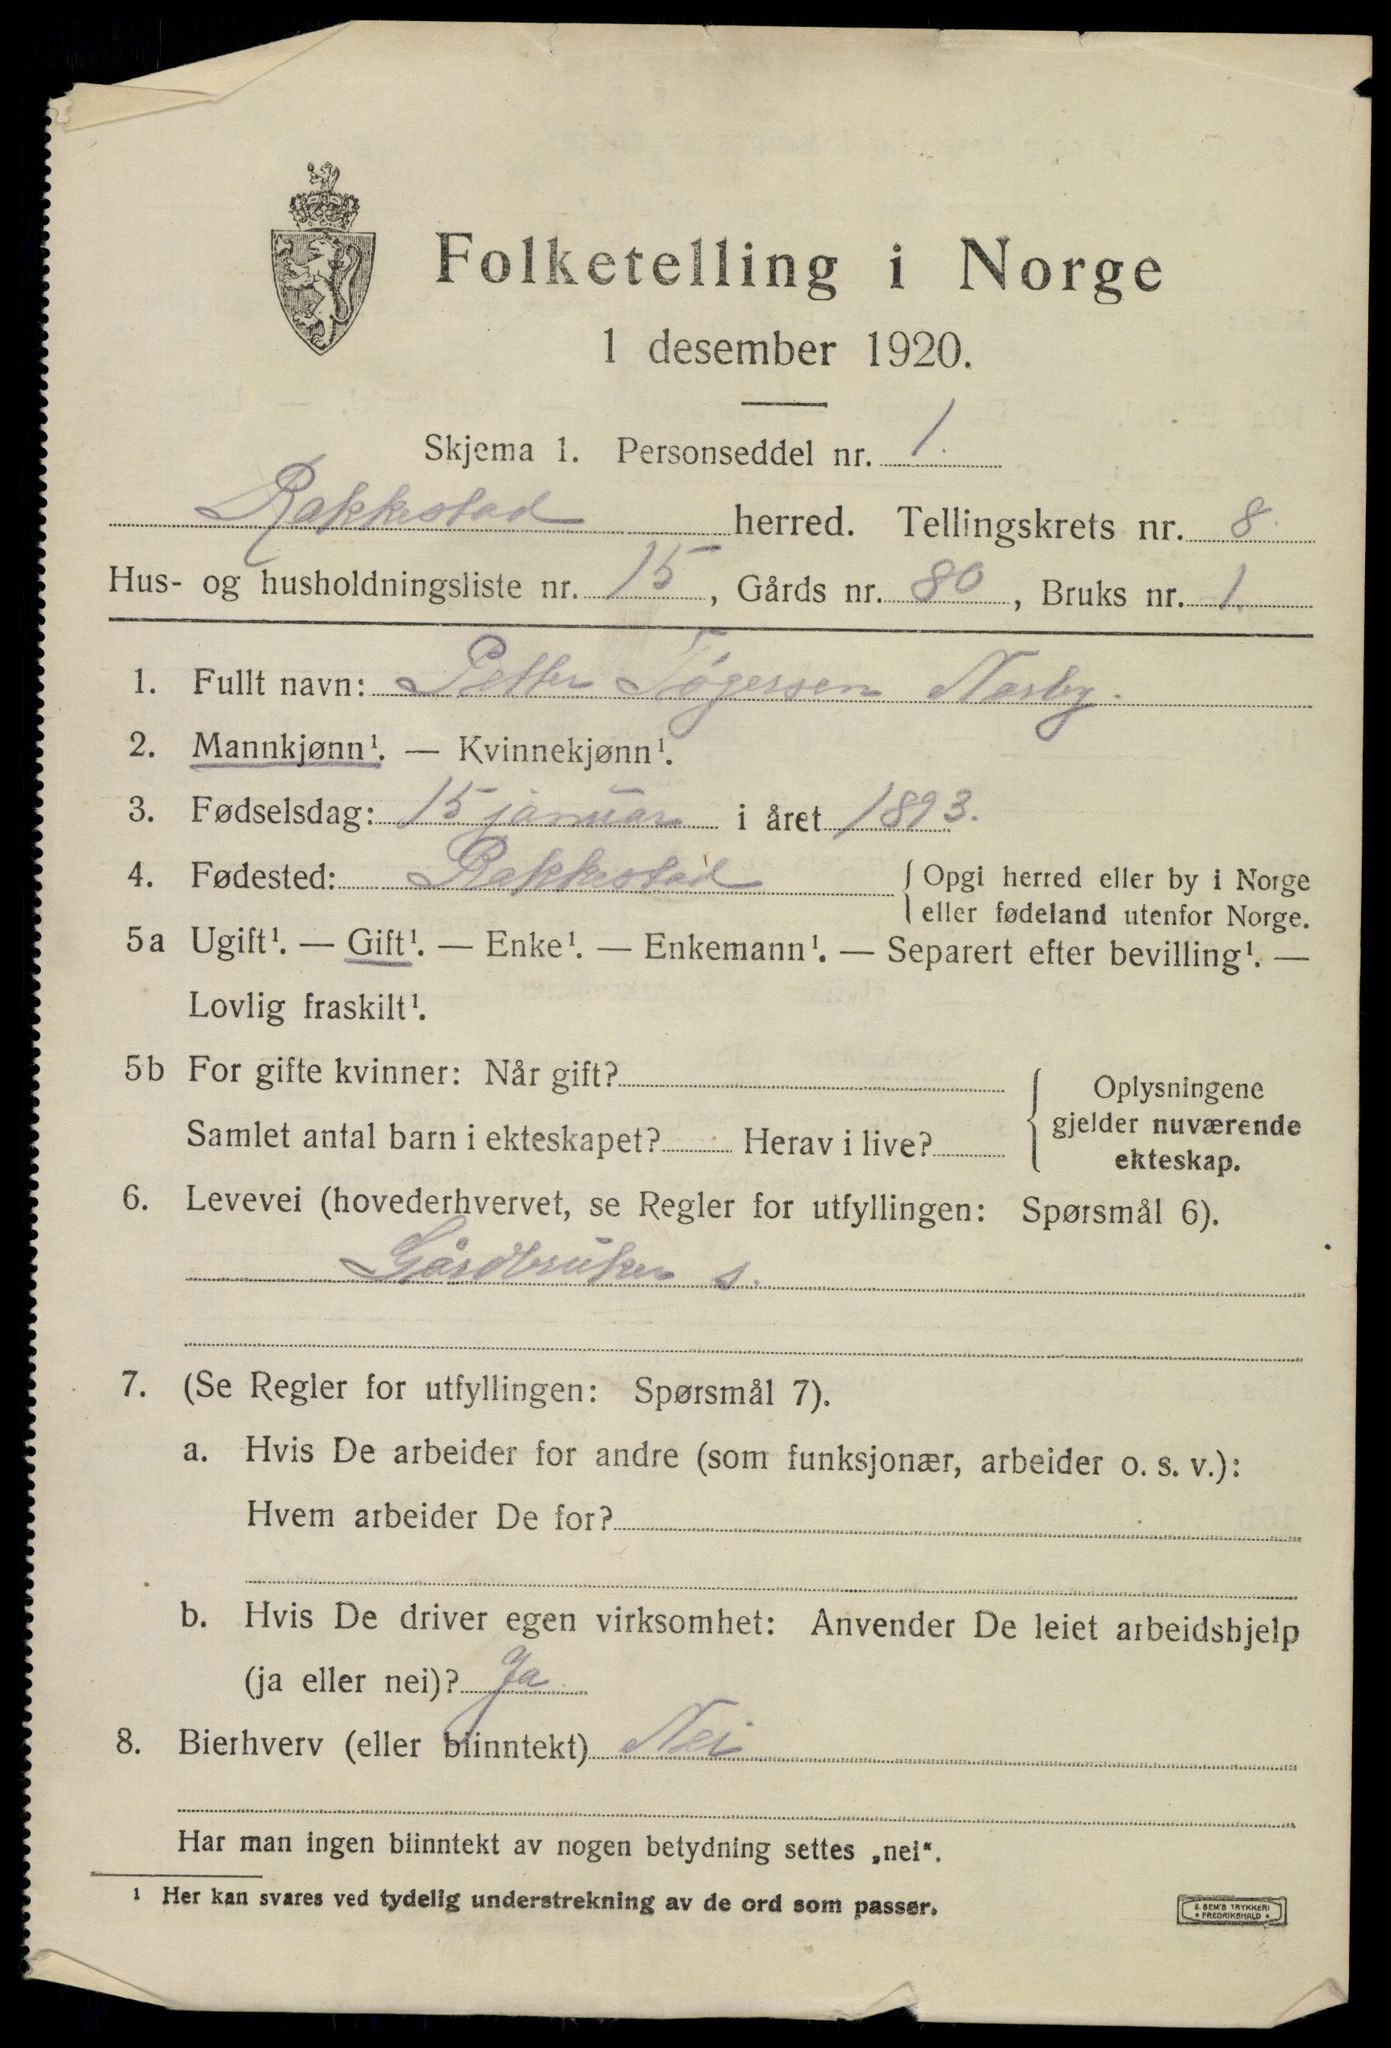 Folketelling i Norge
1 desember 1920.
Skjema 1. Personseddel nr. 1.
Rakkestad herred. Tellingskrets nr. 8.
Hus- og husholdningsliste nr. 15, Gårds nr. 80, Bruks nr. 1.
1. Fullt navn: Petter Tøgersen Nærby.
2. Mannkjønn¹. — Kvinnekjønn¹.
3. Fødselsdag: 15 januar i året 1893.
4. Fødested: Rakkestad { Opgi herred eller by i Norge
eller fødeland utenfor Norge.
5a Ugift¹. — Gift¹. — Enke¹. — Enkemann¹. — Separert efter bevilling¹. —
Lovlig fraskilt¹.
5b For gifte kvinner: Når gift?
Samlet antal barn i ekteskapet? Herav i live?
{ Oplysningene
gjelder nuværende
ekteskap.
6. Levevei (hovederhvervet, se Regler for utfyllingen: Spørsmål 6).
Gårdbruker s.
7. (Se Regler for utfyllingen: Spørsmål 7).
a. Hvis De arbeider for andre (som funksjonær, arbeider o. s. v.):
Hvem arbeider De for?
b. Hvis De driver egen virksomhet: Anvender De leiet arbeidshjelp
(ja eller nei)? Ja
8. Bierhverv (eller biinntekt) Nei
Har man ingen biinntekt av nogen betydning settes „nei“.
¹ Her kan svares ved tydelig understrekning av de ord som passer.
E. SEM'S TRYKKERI
• FREDRIKSHALD •